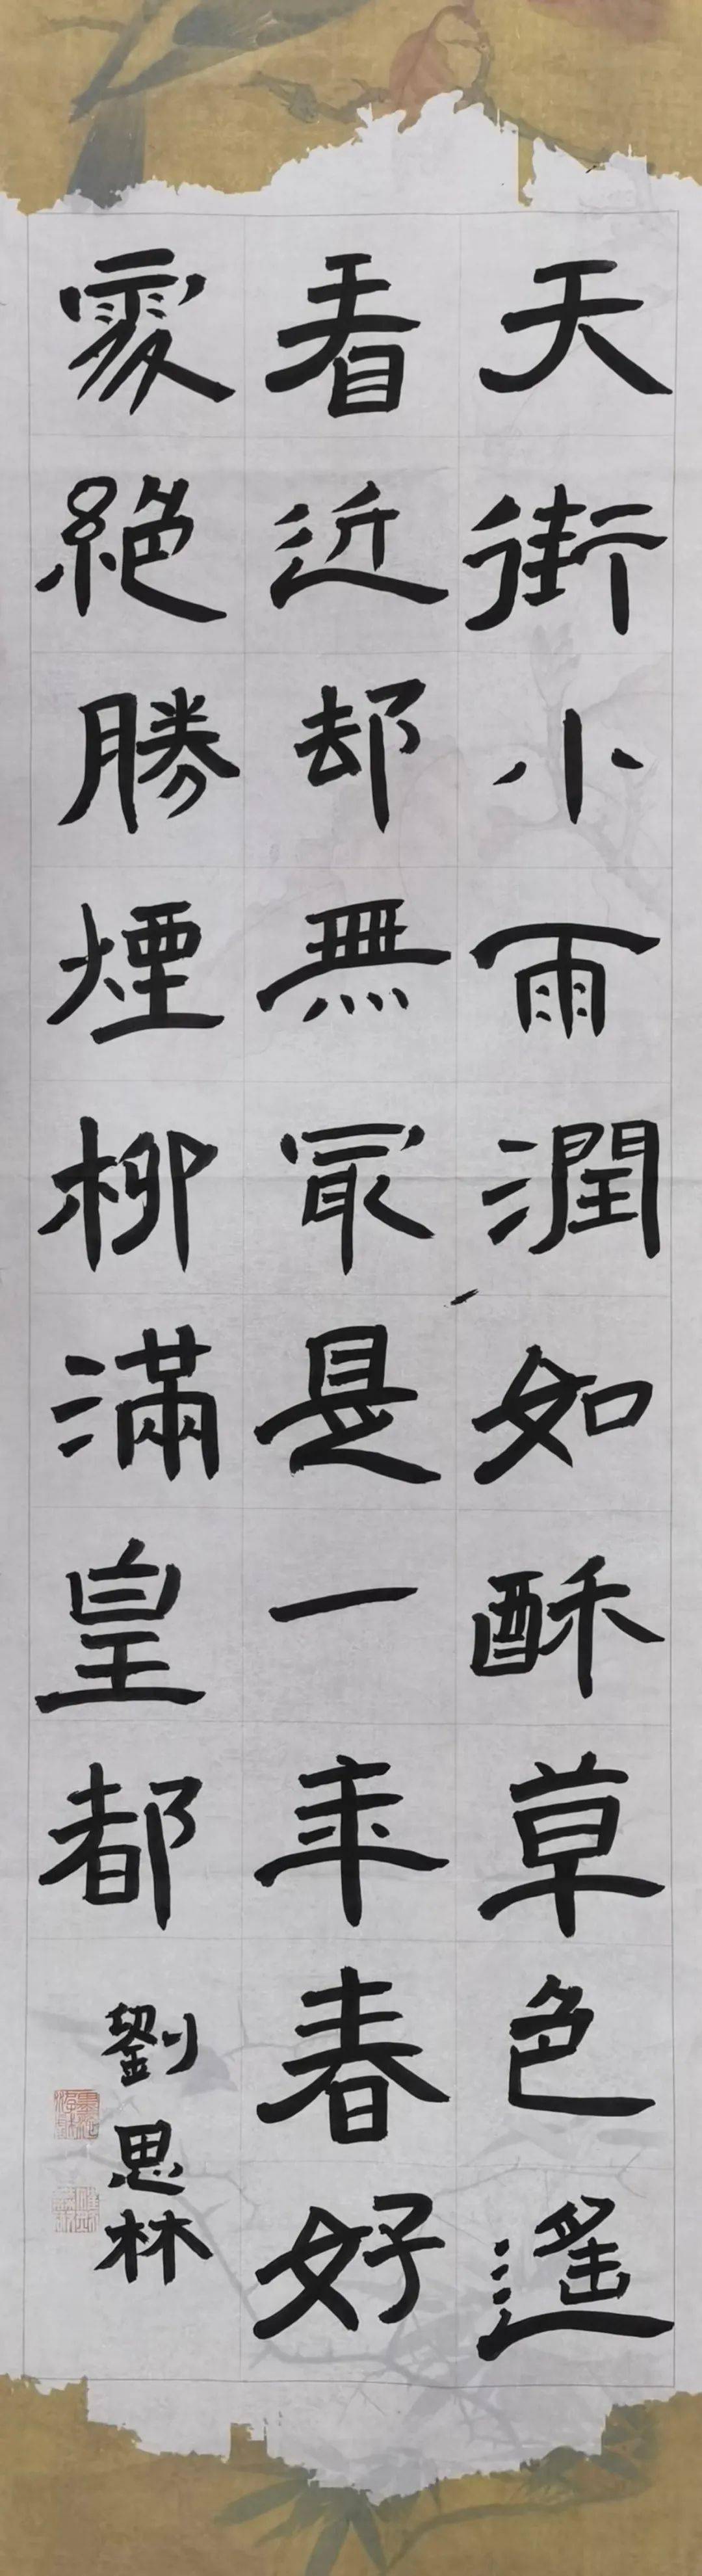 天街小雨潤如酥草色遙
看近却無冣是一年春好
處絕勝煙柳滿皇都
劉思林